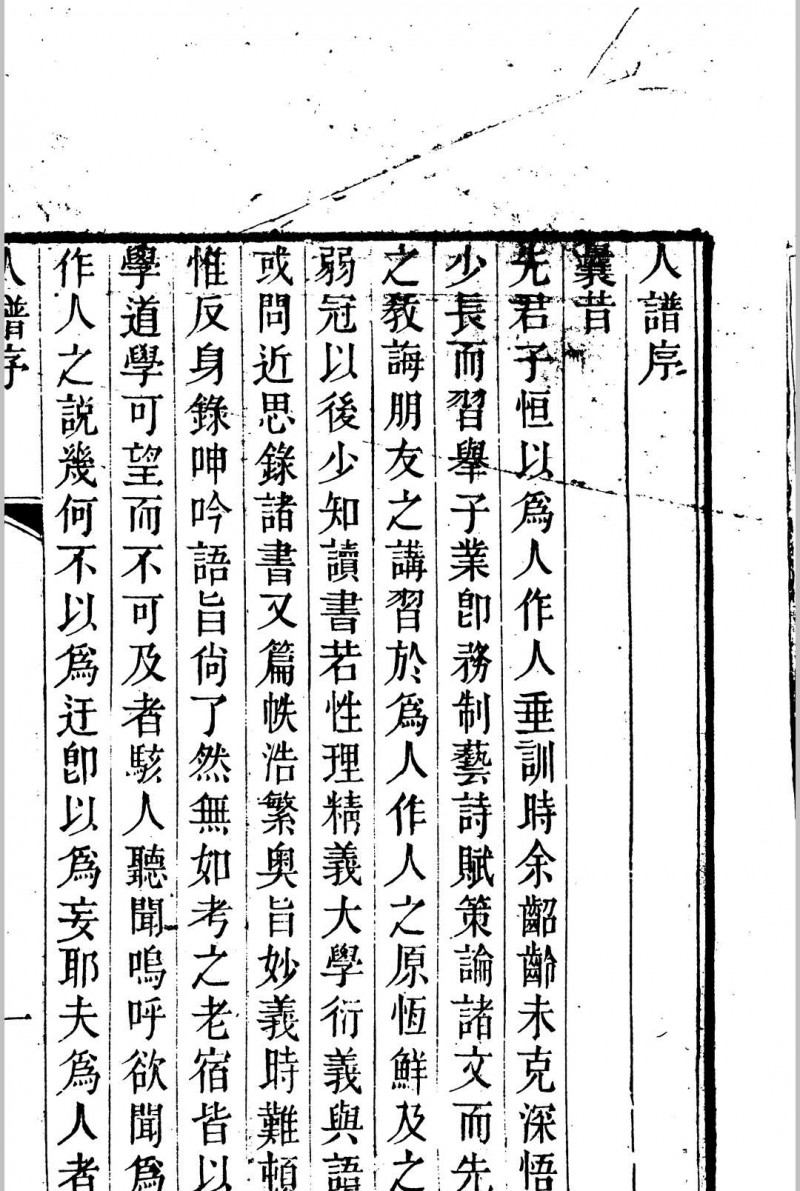 人譜序
曩昔
先君子恒以爲人作人垂訓時余齠齡未克深悟
少長而習舉子業卽務制藝詩賦策論諸文而先
之教誨朋友之講習於爲人作人之原恆鮮及之
弱冠以後少知讀書若性理精義大學衍義與語
或問近思錄諸書又篇帙浩繁奧旨妙義時難頓
惟反身錄呻吟語旨尙了然無如考之老宿皆以
學道學可望而不可及者駭人聽聞嗚呼欲聞爲
作人之說幾何不以爲迂卽以爲妄耶夫爲人者
人譜序
一